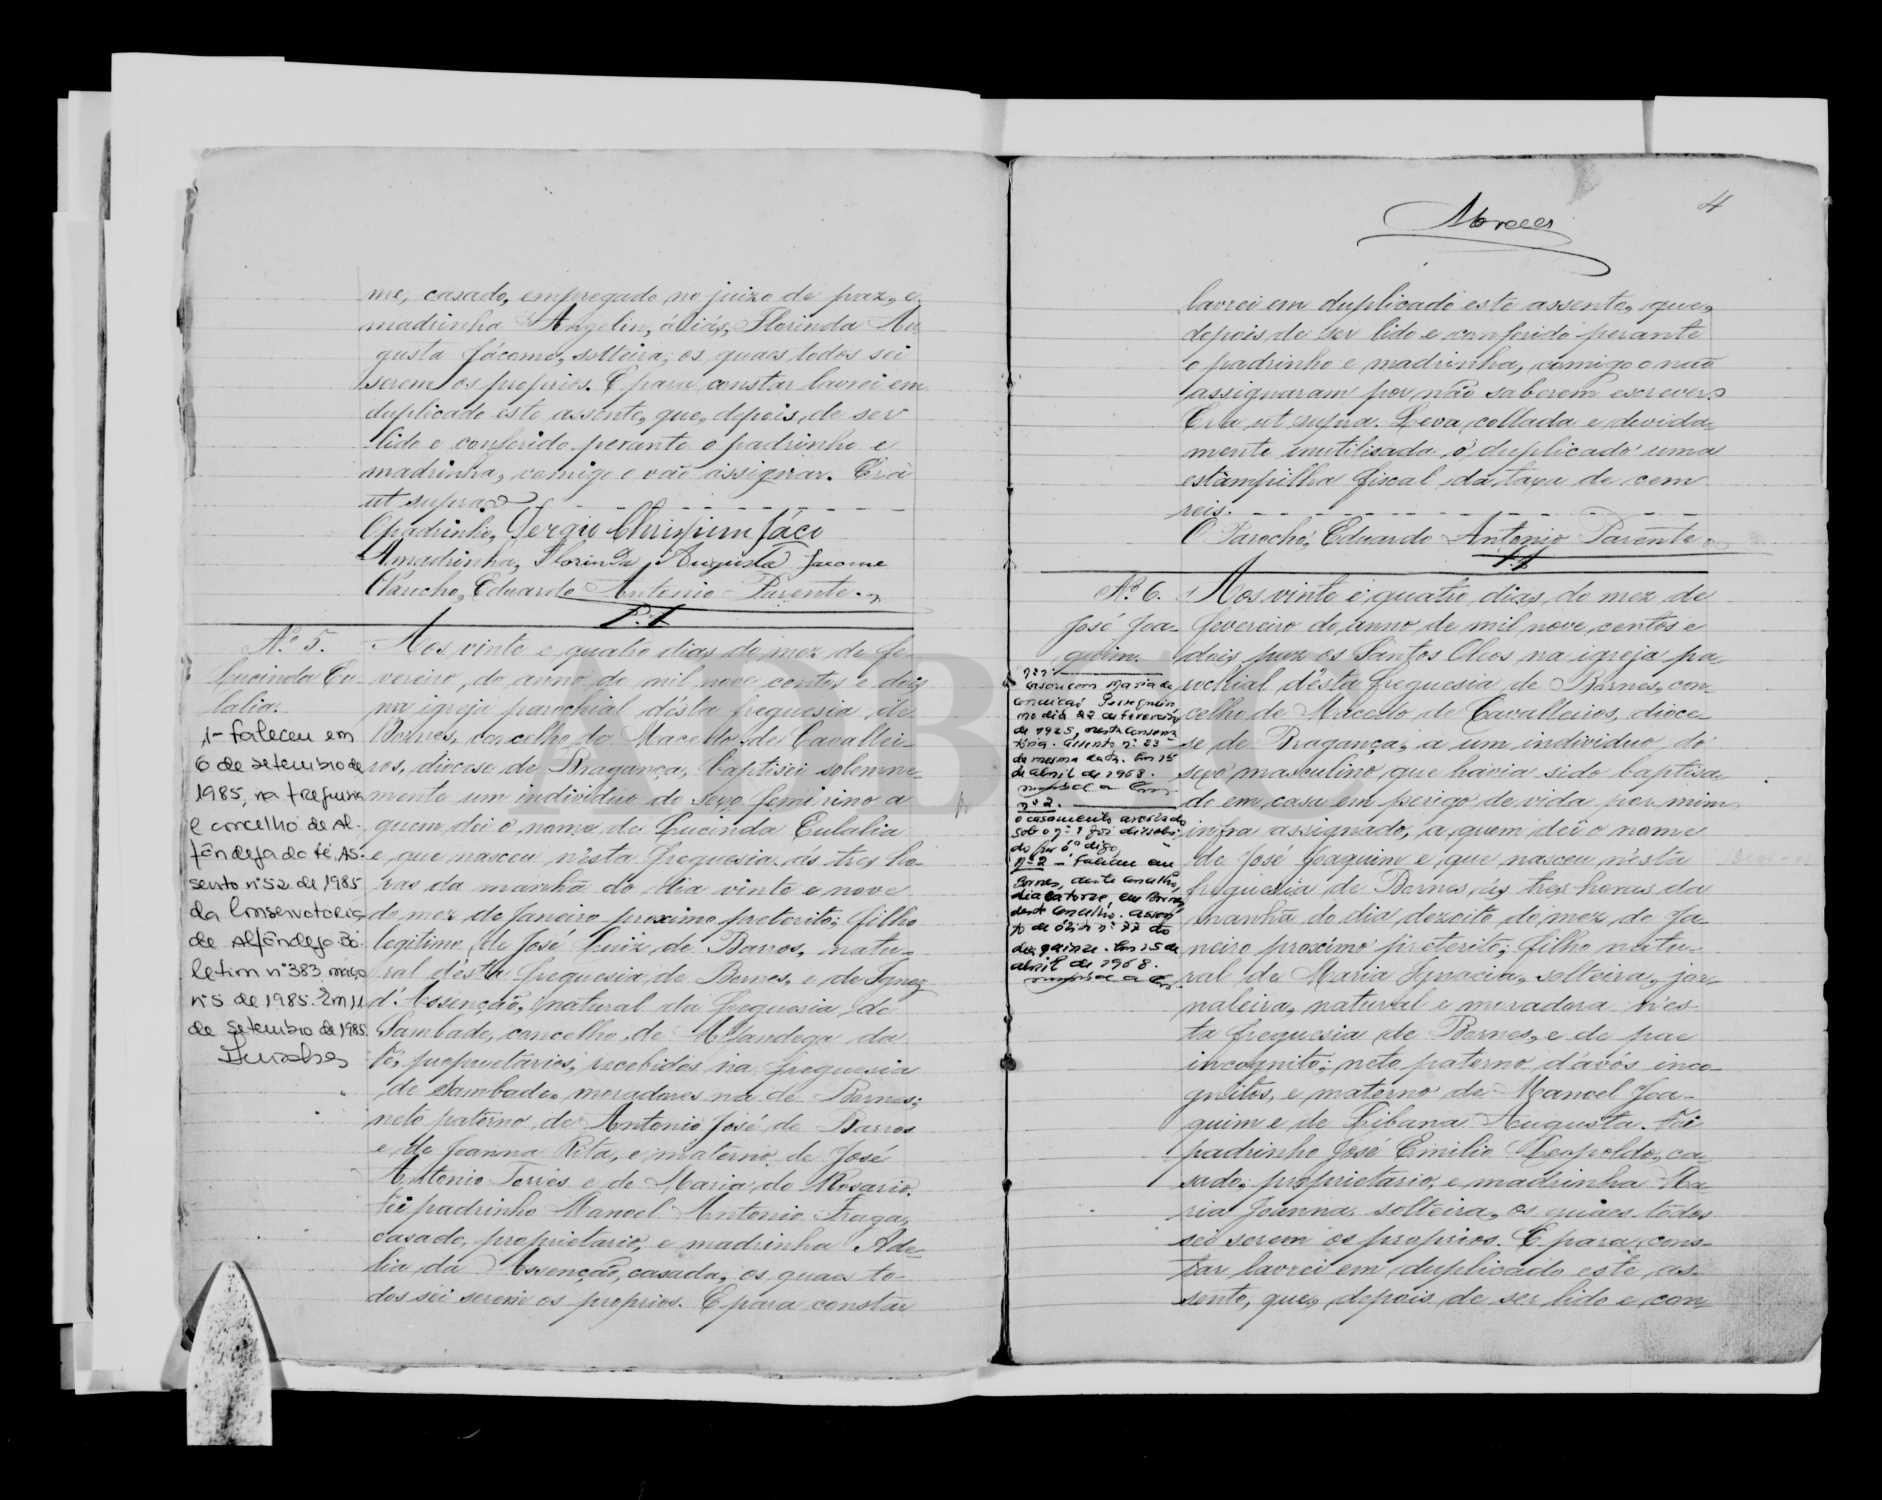 me, casado, empregado no juizo de paz, e
madrinha Angelin, áliás, Florinda Au
gusta Jácome, solteira; os quaes todos sei
serem os proprios. E para constar lavrei em
duplicado este assento, que, depois de ser
lido e conferido perante o padrinho e
madrinha, comigo e vão assignar. Era
ut supra.
O padrinho, Sergio Jáco
A madrinha, Florinda Augusta Jacome
O Parocho, Eduardo Antonio Parente.
Nº 5.
Lucinda Eu
lalia.
1- Faleceu em
6 de setembro de
1985, na freguesia
e concelho de Al-
fândega da Fé, As-
sento nº 52 de 1985
da Conservatoria
de Alfândega. Bo-
letim nº 383, março
nº 5 de 1985. Em 11
de setembro de 1985.
Aos vinte e quatro dias do mez de fe-
vereiro, do anno de mil nove centos e dois
na igreja parochial désta freguesia de
Bornes, concelho de Macedo de Cavallei-
ros, diocese de Bragança, baptisei solemne-
mente um individuo do sexo feminino a
quem dei o nome de Lucinda Eulalia
e que nasceu n'esta freguesia ás tres ho-
ras da manhã do dia vinte e nove
do mez de Janeiro proximo preterito; filha
legitima de José Luiz de Barros, natu-
ral désta freguesia de Bornes, e de Ignez
d'Assenção, natural da freguesia de
Sambade, concelho de Alfandega da
Fé, proprietarios, recebidos na freguesia
de Sambade, moradores na de Bornes;
neto paterno de Antonio José de Barros
e de Joanna Rita, e materno de José
Antonio Torres e de Maria do Rosario.
Foi padrinho Manoel Antonio Fraga,
casado, proprietario, e madrinha Ade-
lia da Assenção, casada, os quaes to-
dos sei serem os proprios. E para constar
4
lavrei em duplicado este assento, que,
depois de ser lido e conferido perante
o padrinho e madrinha, comigo o não
assignaram por não saberem escrever.
Era ut supra. Leva collada e devida-
mente inutilisada o duplicado uma
estampilha fiscal da taxa de cem
reis.
O Parocho, Eduardo Antonio Parente
Nº 6.
José Joa-
quim.
nº 1
Casou com Maria da
Conceição
no dia 22 de fevereiro
de 1925, nesta Conserva
tória. Assento nº 23
da mesma data. Em 15
de abril de 1968.
nº 2.
O casamento averbado
sob o nº 1 foi dissolvi
do por o digo,
nº 2 - Faleceu em
Bornes, deste concelho,
dia catorze, em Bornes
deste concelho. Assen
to de óbito nº 77 do
dia quinze. Em 15 de
abril de 1968.
Aos vinte e quatro dias do mez de
fevereiro do anno de mil nove centos e
dois puz os Santos Oleos na igreja pa-
rochial désta freguesia de Bornes, con-
celho de Macedo de Cavalleiros, dioce-
se de Bragança, a um individuo do
sexo masculino, que havia sido baptisa-
do em casa em perigo de vida por mim
infra assignado, a quem dei o nome
de José Joaquim e que nasceu n'esta
freguesia de Bornes, ás tres horas da
manhã do dia dezoito do mez de Ja-
neiro proximo preterito; filho natu-
ral de Maria Ignacia, solteira, jor-
naleira, natural e moradora n'es-
ta freguesia de Bornes, e de pae
incognito; neto paterno d'avós inco-
gnitos, e materno de Manoel Joa-
quim e de Libana Augusta. Foi
padrinho José Emilio Leopoldo, ca-
sado, proprietario, e madrinha Ma-
ria Joanna, solteira, os quaes todos
sei serem os proprios. E para cons-
tar lavrei em duplicado este as-
sento, que, depois de ser lido e con-